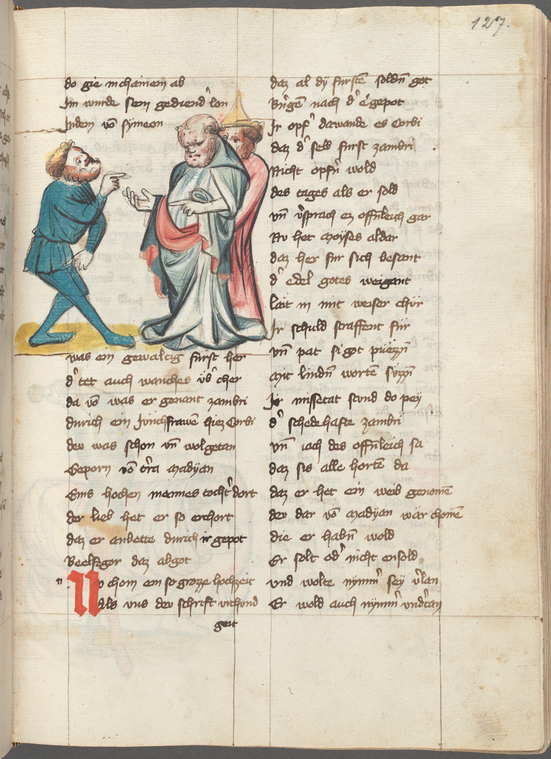 127.
do gie mchainem ab
Im wurde sein gediend' lon
Indem vō symeon
was ein gewaltig furst her
d' tet auch manches ub' cher
da vō was er genant zambri
durich ein Junchfrawē hiez Corbi
der was schon vn̄ wolgetan
Geporn vō madyan
Eins hochen mannes tocht' dort
der lieb het er so erchort
daz er anbette durich ir gepot
Beelfegor daz abgot
Nu chom ein so grozze hochzeit
Als uns der schrift urchund
geit
daz al dy furstē soldn̄ got
Bringē nach d' e gepot
Ir opf' datwande es Corbi
daz d' selb furst zambri
Nicht opfr̄ wold
des tages als er sold
vn̄ v'sprach ez offenleich gar
Nv het moyses aldar
daz her fur sich besant
d' edel gotes weigant
lait in mit weiser chür
Ir schuld straffent für
vn̄ pat si got
Mit lindn̄ worten
Ir missetat stund do pey
d' schedehafte zambri
vn̄ iach des offenleich sa
daz sis alle hortē da
daz er het ein weib genomē
der dar vō madyan wär chomē
die er habn̄ wold
Er solt od' nicht ensold
vnd wolte nymm' sey v'lan
Er wold auch nymm' vndtan